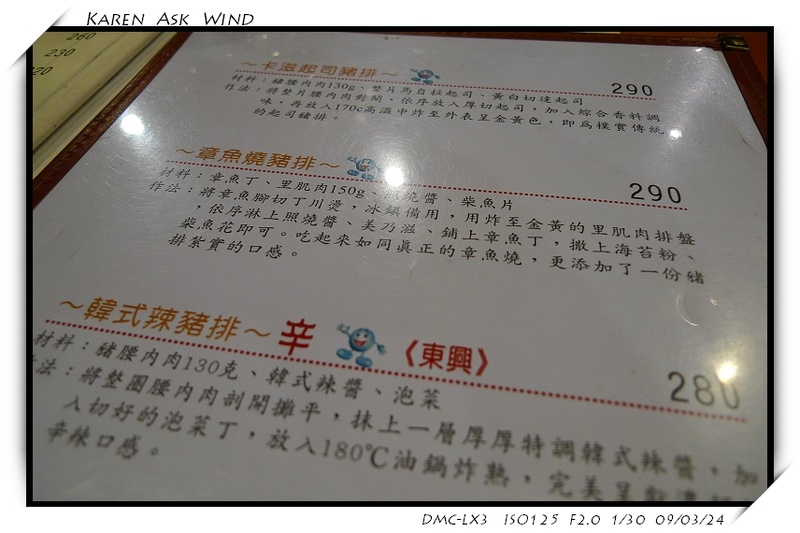 KAREN ASK WIND
260
230
~卡滋起司豬排~
290
材料：豬腰內肉130g、整片馬自拉起司、黃白切達起司
作法：將整片腰內肉對開，依序放入厚切起司，加入綜合香料調
味，再放入170c高溫中炸至外表呈金黃色，即為樸實傳統
的起司豬排。
~章魚燒豬排~
290
材料：章魚丁、里肌肉150g、照燒醬、柴魚片
作法：將章魚腳切丁川燙，冰鎮備用，用炸至金黃的里肌肉排盤
，依序淋上照燒醬、美乃滋、鋪上章魚丁，撒上海苔粉、
柴魚花即可。吃起來如同真正的章魚燒，更添加了一份豬
排紮實的口感。
~韓式辣豬排~ 辛 〈東興〉
280
材料：豬腰內肉130克、韓式辣醬、泡菜
法：將整圈腰內肉剖開攤平，抹上一層厚厚特調韓式辣醬，加
入切好的泡菜丁，放入180℃油鍋炸熟，完美呈
辛辣口感。
DMC-LX3 ISO125 F2.0 1/30 09/03/24